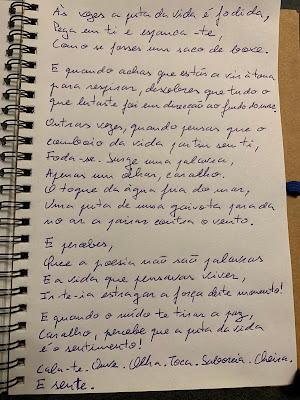 Às vezes a puta da vida é fodida,
Pega em ti e espanca-te,
Como se fosses um saco de boxe.
E quando achas que estás a vir à tona
para respirar, descobres que tudo o
que lutaste foi em direcção ao fundo do mar.
Outras vezes, quando pensas que o
comboio da vida partiu sem ti,
Foda-se. Surge uma palavra,
Apenas um olhar, caralho.
O toque da água fria do mar,
Uma puta de uma gaivota parada
no ar a pairar contra o vento.
E percebes,
Que a poesia não são palavras
E a vida que pensavas viver,
Ir-te-ia estragar a força deste momento!
E quando o ruído te tirar a paz,
Caralho, percebe que a puta da vida
é o sentimento!
Cala-te. Ouve. Olha. Toca. Saboreia. Cheira.
E sente.